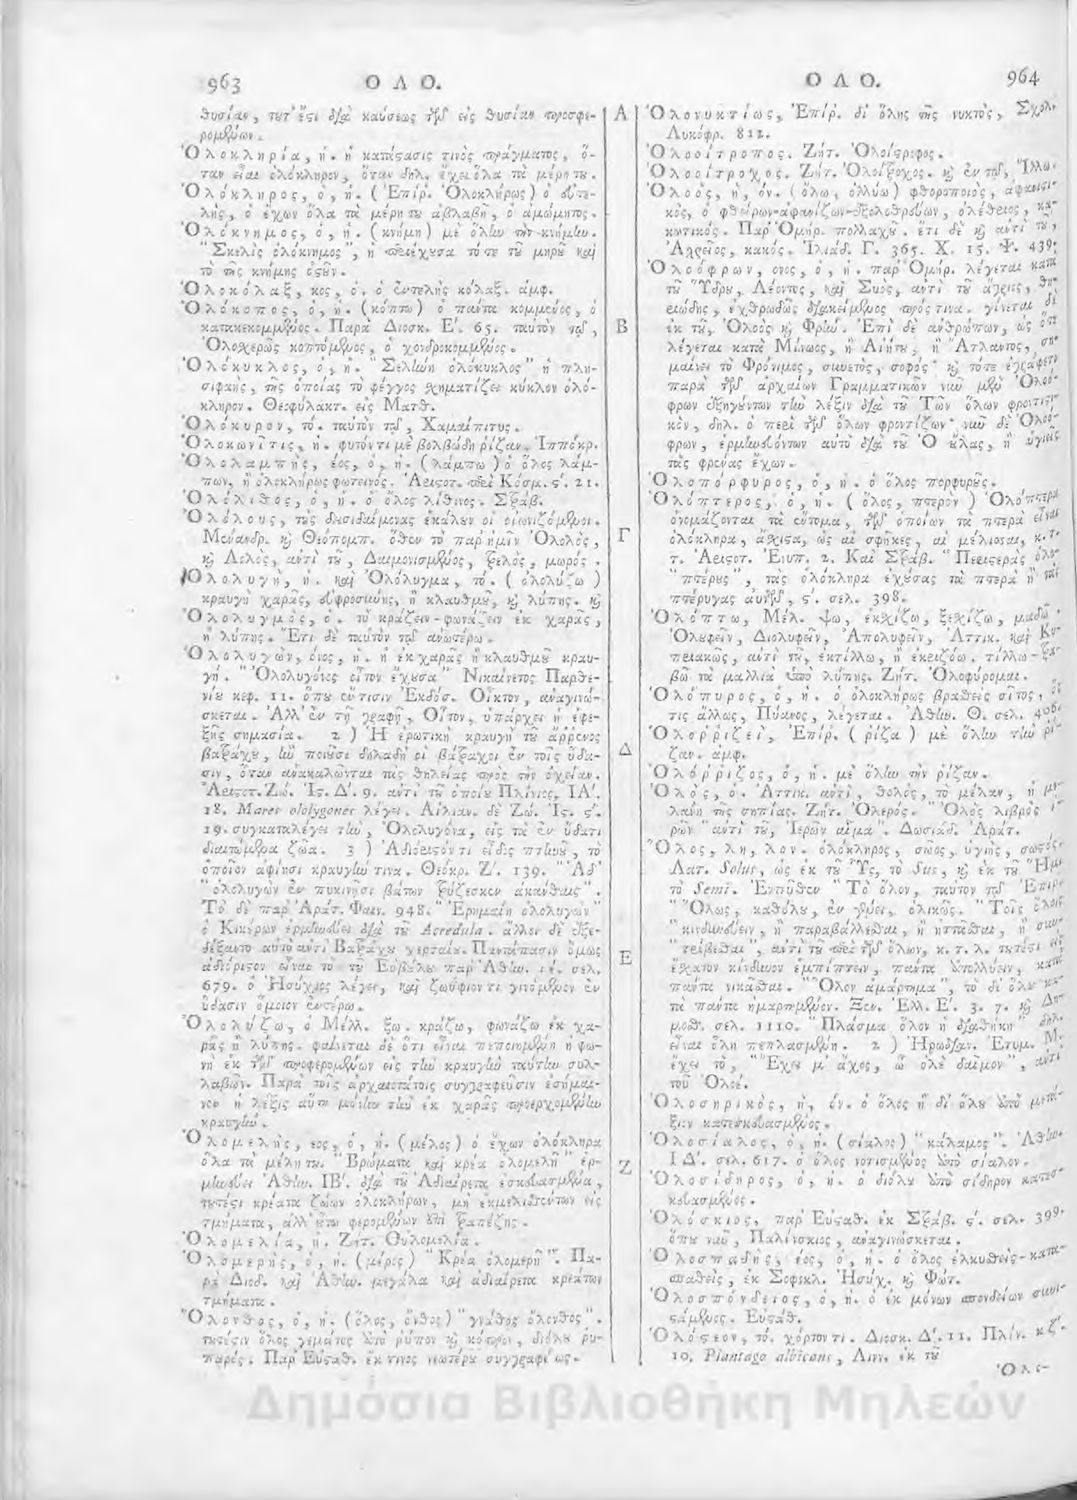 963 Ο Λ Ο.
θυσίαν, τουτ' έστι δια καύσεως των εις θυσίαν προσφε-
ρομένων.
Ὁλοκληρία, ἡ. ἡ κατάστασις τινὸς πράγματος, ὅ-
ταν εἶναι ὁλόκληρον, ὅταν δηλ. ἔχει ὅλα τὰ μέρη του.
Ὁλόκληρος, ὁ, ἡ. (Ἐπίρ. Ὁλοκλήρως) ὁ
λὴς, ὁ ἔχων ὅλα τὰ μέρη του ἀβλαβῆ, ὁ ἀμώμητος.
Ὁλόκνημος, ὁ, ἡ. (κνήμη) μὲ ὅλην τὴν κνήμην.
"Σκελὶς ὁλόκνημος", ἡ περιέχουσα τό τε τοῦ μηροῦ καὶ
τὸ τῆς κνήμης ὀστοῦν.
Ὁλοκόλαξ, κος, ὁ. ὁ ἐντελὴς κόλαξ. ἀμφ.
Ὁλόκοπος, ὁ, ἡ. (κόπτω) ὁ πάντα κομμένος, ὁ
κατακεκομμένος. Παρὰ Διοσκ. Ε'. 65. ταὐτὸν τῷ,
Ὁλοσχερῶς κοπτόμενος, ὁ χονδροκομμένος.
Ὁλόκυκλος, ὁ, ἡ. "Σελήνη ὁλόκυκλος" ἡ πλη-
σιφαὴς, τῆς ὁποίας τὸ φέγγος σχηματίζει κύκλον ὁλό-
κληρον. Θεοφύλακτ. εἰς Ματθ.
Ὁλόκυρον, τό. ταὐτὸν τῷ, Χαμαίπιτυς.
Ὁλοκωνῖτις, ἡ. φυτόν τι μὲ βολβώδη ρίζαν. Ἱππόκρ.
Ὁλολαμπὴς, έος, ὁ, ἡ. (λάμπω) ὁ ὅλος λάμ-
πων, ἢ ὁλοκλήρως φωτεινός. Ἀριστοτ. περὶ Κόσμ. ς'. 21.
Ὁλόλιθος, ὁ, ἡ. ὁ ὅλος λίθινος. Στράβ.
Ὀλόλους, τοὺς δεισιδαίμονας ἐκάλουν οἱ οἰωνιζόμενοι.
Μένανδρ. καὶ Θεόπομπ. ὅθεν τὸ παρ' ἡμῖν Ὀλολός,
καὶ Λελός, ἀντὶ τοῦ, Δαιμονισμένος, τρελὸς, μωρός.
Ὀλολυγὴ, ἡ. καὶ Ὀλόλυγμα, τό. (ὀλολύζω)
κραυγὴ χαρᾶς, εὐφροσύνης, ἢ κλαυθμοῦ, καὶ λύπης. καὶ
Ὀλολυγμὸς, ὁ. τὸ κράζειν-φωνάζειν ἐκ χαρᾶς,
ἢ λύπης. Ἔτι δὲ ταὐτὸν τῷ ἀνωτέρω.
Ὀλολυγὼν, όνος, ἡ. ἡ ἐκ χαρᾶς ἢ κλαυθμοῦ κραυ-
γή. "Ὀλολυγόνος οἶτον ἔχουσα" Νικαίνετος Παρθε-
νίου κεφ. 11. ὅπου ἔν τισιν Ἐκδόσ. Οἶκτον, ἀναγινώ-
σκεται. Ἀλλ' ἐν τῇ γραφῇ, Οἶτον, ὑπάρχει ἡ ἐφε-
ξῆς σημασία. 2) Ἡ ἐρωτικὴ κραυγὴ τοῦ ἄρρενος
βατράχου, ἣν ποιοῦσι δηλαδὴ οἱ βάτραχοι ἐν τοῖς ὕδα-
σιν, ὅταν ἀνακαλῶνται τὰς θηλείας πρὸς τὴν ὀχείαν.
Ἀριστοτ. Ζώ. Ἱς. Δ'. 9. ἀντὶ τοῦ ὁποίου Πλίνιος, ΙΑ'.
18. Mares ololygones λέγει. Αἰλιαν. δὲ Ζώ. Ἱς. ς'.
19. συγκαταλέγει τὴν, Ὀλολυγόνα, εἰς τὰ ἐν ὕδατι
διαιτώμενα ζῶα. 3) Ἀδιόριστόν τι εἶδος πτηνοῦ, τὸ
ὁποῖον ἀφίησι κραυγήν τινα. Θεόκρ. Ζ'. 139. "Ἁ δ'
"ὀλολυγὼν ἐν πυκινῇσι βάτων τρύζεσκεν ἀκάνθαις".
Τὸ δὲ παρ' Ἀράτ. Φαιν. 948. "Ἐρημαίη ὀλολυγὼν"
ὁ Κικέρων ἑρμηνεύει διὰ τοῦ Acredula. ἄλλοι δὲ ἐξε-
δέξαντο αὐτὸ ἀντὶ Βατράχου Παντάπασιν ὅμως
ἀδιόριστον εἶναι τὸ τοῦ Εὐβούλου παρ' Ἀθην. ιε. σελ.
679. ὁ Ἡσύχιος λέγει, καὶ ζωΰφιόν τι γινόμενον ἐν
ὕδασιν ὅμοιον ἐντέρῳ.
Ὀλολύζω, ὁ Μέλλ. ξω. κράζω, φωνάζω ἐκ χα-
ρᾶς ἢ λύπης. φαίνεται δὲ ὅτι εἶναι πεποιημένη ἡ φω-
νὴ ἐκ τῶν προφερομένων εἰς τὴν κραυγὴν ταύτην συλ-
λαβῶν. Παρὰ τοῖς ἀρχαιοτάτοις συγγραφεῦσιν ἐσήμαι-
νεν ἡ λέξις αὕτη μόνην τὴν ἐκ χαρᾶς προερχομένην
κραυγήν.
Ὁλομελὴς, εος, ὁ, ἡ. (μέλος) ὁ ἔχων ὁλόκληρα
ὅλα τὰ μέλη του. "Βρώματα καὶ κρέα ὁλομελῆ" ἑρ-
μηνεύει Ἀθην. ΙΒ'. διὰ τοῦ Ἀδιαίρετα ἐσκευασμένα,
τουτέστι κρέατα ζώων ὁλοκλήρων, μὴ ἐκμελισθέντων εἰς
τμήματα, ἀλλ' οὕτω φερομένων ἐπὶ τραπέζης.
Ὁλομελία, ἡ. Ζήτ. Οὐλομελία.
Ὁλομερὴς, ὁ, ἡ. (μέρος) "Κρέα ὁλομερῆ". Πα-
ρὰ Διοδ. καὶ Ἀθην. μεγάλα καὶ ἀδιαίρετα κρεάτων
τμήματα.
Ὄλονθος, ὁ, ἡ. (ὅλος, ὄνθος) "γνάθος ὄλονθος".
τουτέστιν ὅλος γεμάτος ἀπὸ ῥύπον καὶ κόπρον, διόλου ῥυ-
παρός. Παρ' Εὐσταθ. ἔκ τινος νεωτέρου συγγραφέως.
Α
Β
Γ
Δ
Ε
Ζ
Ο Λ Ο. 964
Ὁλονυκτίως, Ἐπίρ. δι' ὅλης τῆς νυκτὸς, Σχολ.
Λυκόφρ. 812.
Ὁλοοίτροπος. Ζήτ. Ὀλοίστροφος.
Ὁλοοίτροχος. Ζήτ. Ὀλοίτροχος. καὶ ἐν τῷ,
Ὀλοὸς, ἡ, όν. (ὄλω, ὀλλύω) φθοροποιὸς, ἀφανιστι-
κὸς, ὁ φθείρων-ἀφανίζων-ἐξολοθρεύων, ὀλέθριος, κα-
κωτικός. Παρ' Ὁμήρ. πολλαχοῦ. ἔτι δὲ καὶ ἀντὶ τοῦ,
Ἀχρεῖος, κακός. Ἰλιάδ. Γ. 365. Χ. 15. Ψ. 439.
Ὀλοόφρων, ονος, ὁ, ἡ. παρ' Ὁμήρ. λέγεται κατὰ
τοῦ Ὕδρου, Λέοντος, καὶ Συὸς, ἀντὶ τοῦ ἄγριος, θη-
ριώδης, ἐχθρωδῶς διακείμενος πρός τινα. γίνεται δὲ
ἐκ τοῦ, Ὀλοὸς καὶ Φρήν. Ἐπὶ δὲ ἀνθρώπων, ὡς ὅτε
λέγεται κατὰ Μίνωος, ἢ Αἰήτου, ἢ Ἄτλαντος, ση-
μαίνει τὸ Φρόνιμος, συνετὸς, σοφὸς καὶ τότε ἐγράφετο
παρὰ τῶν ἀρχαίων Γραμματικῶν νῦν μὲν Ὁλοό-
φρων ἐξηγούντων τὴν λέξιν διὰ τοῦ Τῶν ὅλων φροντιστι-
κὸν, δηλ. ὁ περὶ τῶν ὅλων φροντίζων νῦν δὲ Ὁλοό-
φρων, ἑρμηνευόντων αὐτὸ διὰ τοῦ Ὁ οὔλας, ἢ ὑγιεῖς
τὰς φρένας ἔχων.
Ὁλοπόρφυρος, ὁ, ἡ. ὁ ὅλος πορφυροῦς.
Ὁλόπτερος, ὁ, ἡ. (ὅλος, πτερὸν) Ὁλόπτερα
ὀνομάζονται τὰ ἔντομα, τῶν ὁποίων τὰ πτερὰ εἶναι
ὁλόκληρα, ἄσχιστα, ὡς αἱ σφῆκες, αἱ μέλισσαι, κ.τ.
τ. Ἀριστοτ. Ἐνυπ. 2. Καὶ Στράβ. "Περιστερὰς ὁλο-
"πτέρους", τὰς ὁλόκληρα ἐχούσας τὰ πτερὰ ἢ τὰς
πτέρυγας αὐτῶν, ς'. σελ. 398.
Ὀλόπτω, Μέλ. ψω, ἐκσχίζω, ξεσχίζω, μαδῶ
Ὀλουφεῖν, Διολυφεῖν, Ἀπολυφεῖν, Ἀττικ. καὶ Κυ-
πριακῶς, ἀντὶ τοῦ, ἐκτίλλω, ἢ ἐκριζόω. τίλλω-
βῶ τὰ μαλλιὰ ἀπὸ λύπης. Ζήτ. Ὀλοφύρομαι.
Ὁλόπυρος, ὁ, ἡ. ὁ ὁλοκλήρως βρασθεὶς σῖτος,
τις ἄλλως, Πύανος, λέγεται. Ἀθην. Θ. σελ. 406.
Ὁλοῤῥιζεὶ, Ἐπίρ. (ρίζα) μὲ ὅλην τὴν ρί-
ζαν. ἀμφ.
Ὁλόῤῥιζος, ὁ, ἡ. μὲ ὅλην τὴν ρίζαν.
Ὀλὸς, ὁ. Ἀττικ. ἀντὶ, θολὸς, τὸ μέλαν, ἡ με-
λάνη τῆς σηπίας. Ζήτ. Ὀλερός. "Ὀλὸς λιβρὸς
ρῶν" ἀντὶ τοῦ, Ἱερῶν αἷμα. Δωσιάδ. Ἀράτ.
Ὅλος, λη, λον. ὁλόκληρος, σῶος, ὑγιὴς, σωστός.
Λατ. Solus, ὡς ἐκ τοῦ Ὗς, τὸ Sus, καὶ ἐκ τοῦ Ἡμι
τὸ Semi. Ἐντεῦθεν "Τὸ ὅλον, ταὐτὸν τῷ Ἐπιρ.
"Ὅλως, καθόλου, ἐν γένει, ὁλικῶς. "Τοῖς ὅλοις
"κινδυνεύειν, ἢ παραβάλλεσθαι, ἢ ἡττᾶσθαι, ἢ συν-
"τρίβεσθαι", ἀντὶ τοῦ περὶ τῶν ὅλων, κ.τ.λ. τουτέστι εἰς
ἔσχατον κίνδυνον ἐμπίπτειν, πάντα ἀπολλύειν, κατὰ
πάντα νικᾶσθαι. "Ὅλον ἁμάρτημα", τὸ δι' ὅλου κα-
τὰ πάντα ἡμαρτημένον. Ξεν. Ἑλλ. Ε'. 3. 7. καὶ Δη-
μοσθ. σελ. 1110. "Πλάσμα ὅλον ἡ διαθήκη" δηλ.
εἶναι ὅλη πεπλασμένη. 2) Ἡρωδιαν. Ἐτυμ. Μ.
ἔχει τὸ, "Ἔχει μ' ἄχος, ὦ ὀλὲ δαῖμον", ἀντὶ
τοῦ Ὀλοέ.
Ὁλοσηρικὸς, ἡ, όν. ὁ ὅλος ἢ δι' ὅλου ἀπὸ μετά-
ξιν κατεσκευασμένος.
Ὁλοσίαλος, ὁ, ἡ. (σίαλος) "κάλαμος". Ἀθην.
ΙΔ'. σελ. 617. ὁ ὅλος νοτισμένος ἀπὸ σίαλον.
Ὁλοσίδηρος, ὁ, ἡ. ὁ διόλου ἀπὸ σίδηρον κατεσ-
κευασμένος.
Ὁλόσκιος, παρ' Εὐσταθ. ἐκ Στράβ. ς'. σελ. 399.
ὅπου νῦν, Παλίνσκιος, ἀναγινώσκεται.
Ὁλοσπαδὴς, έος, ὁ, ἡ. ὁ ὅλος ἑλκυσθεὶς-κατα-
σπασθεὶς, ἐκ Σοφοκλ. Ἡσύχ. καὶ Φώτ.
Ὁλοσπόνδειος, ὁ, ἡ. ὁ ἐκ μόνων σπονδείων συνι-
στάμενος. Εὐσταθ.
Ὁλόστεον, τό. χόρτον τι. Διοσκ. Δ'. 11. Πλίν. κζ'.
10. Plantago albicans, Λινν. ἐκ τοῦ
Ὁλο-
Δημόσια Βιβλιοθήκη Μηλεών